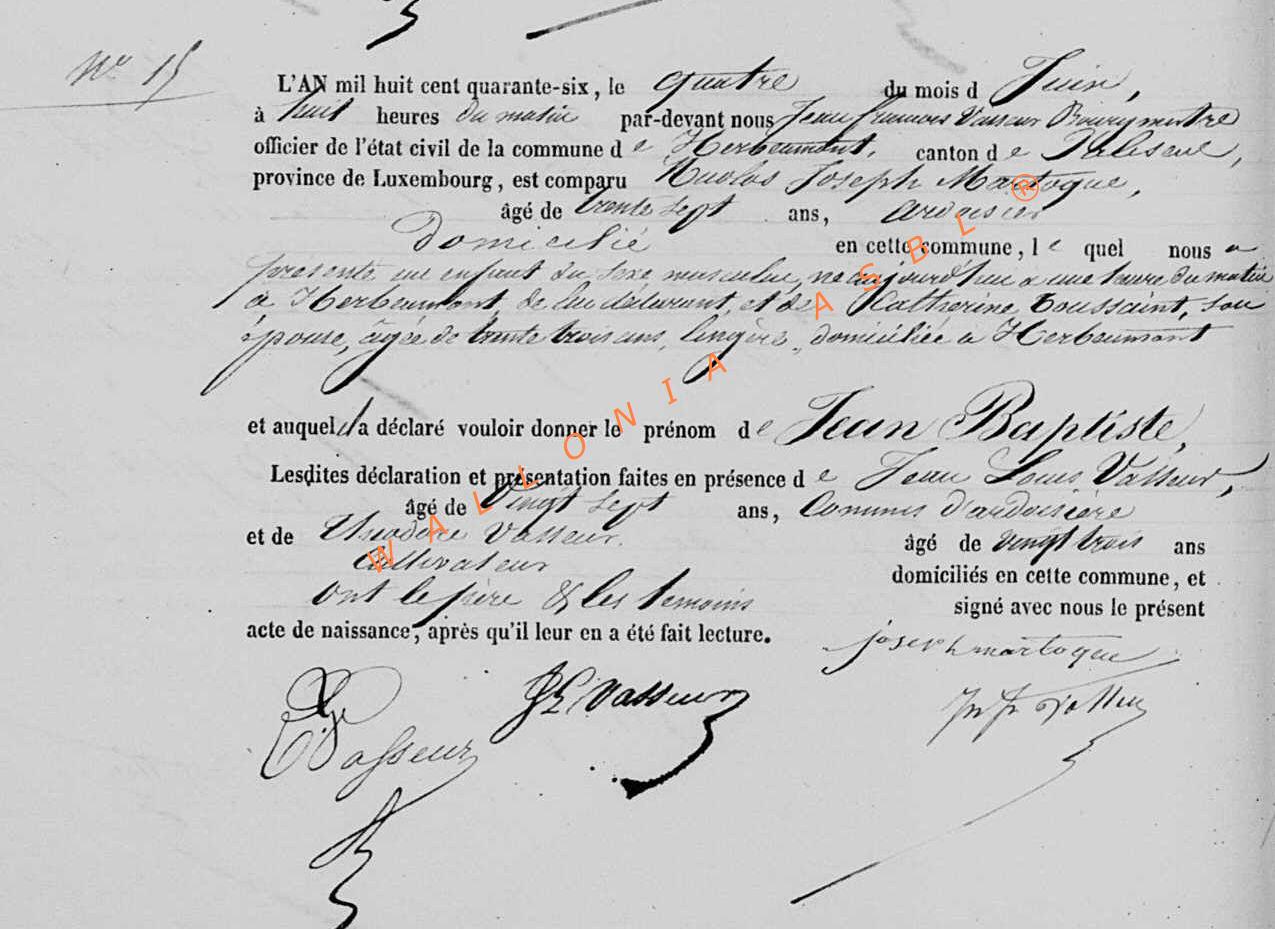 N° 15
L'AN mil huit cent quarante-six, le quatre du mois d Juin,
à huit heures du matin par-devant nous Jean françois Vasseur Bourgmestre
officier de l'état civil de la commune de Herbeumont, canton de Paliseul,
province de Luxembourg, est comparu Nicolas Joseph Martoque,
âgé de trente sept ans, ardoisier
domicilié en cette commune, le quel nous a
présenté un enfant du sexe masculin, né aujourd'hui a une heure du matin
à Herbeumont de lui déclarant, et de Catherine Toussaint, son
épouse, âgée de trente trois ans, lingère, domiciliée a Herbeumont
et auquel il a déclaré vouloir donner le prénom de Jean Baptiste,
Lesdites déclaration et présentation faites en présence de Jean Louis Vasseur,
âgé de vingt sept ans, Commis d'ardoisière
et de Théodore Vasseur. âgé de vingt trois ans
cultivateur domiciliés en cette commune, et
ont le père & les temoins signé avec nous le présent
acte de naissance, après qu'il leur en a été fait lecture.
joseph martoque
JL Vasseur
Vasseur
WALLONIA ASBL®